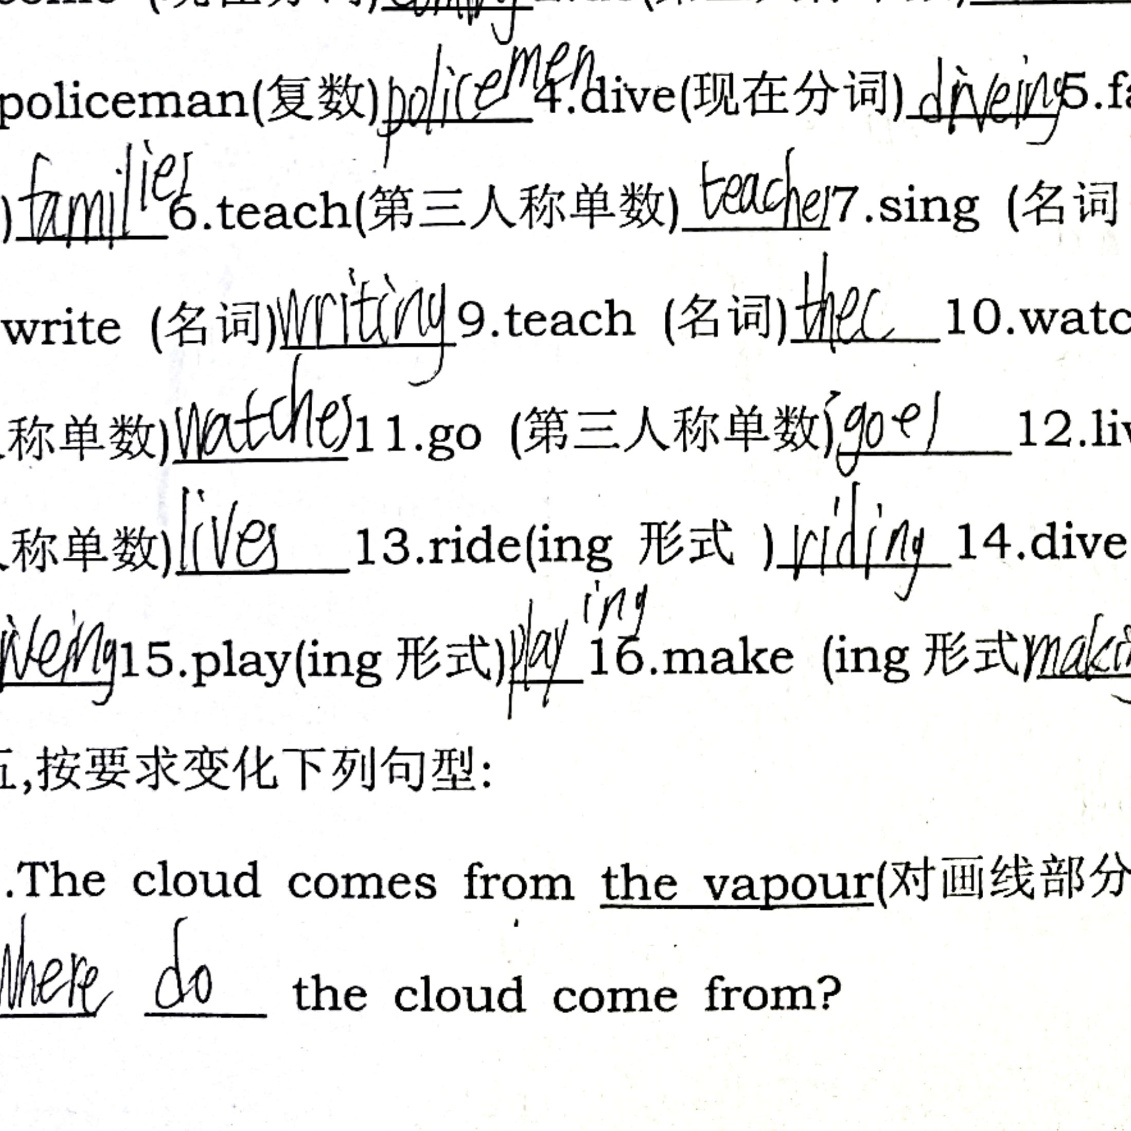 come (现在分词)coming
policeman(复数)policemen4.dive(现在分词)diveing5.fa
)families6.teach(第三人称单数)teaches7.sing (名词
write (名词)writing9.teach (名词)thec10.watc
人称单数)watches11.go (第三人称单数)goes12.liv
人称单数)lives13.ride(ing 形式 )riding14.dive
iveing15.play(ing 形式)playing16.make (ing 形式making
五,按要求变化下列句型:
.The cloud comes from the vapour(对画线部分
Where do the cloud come from?